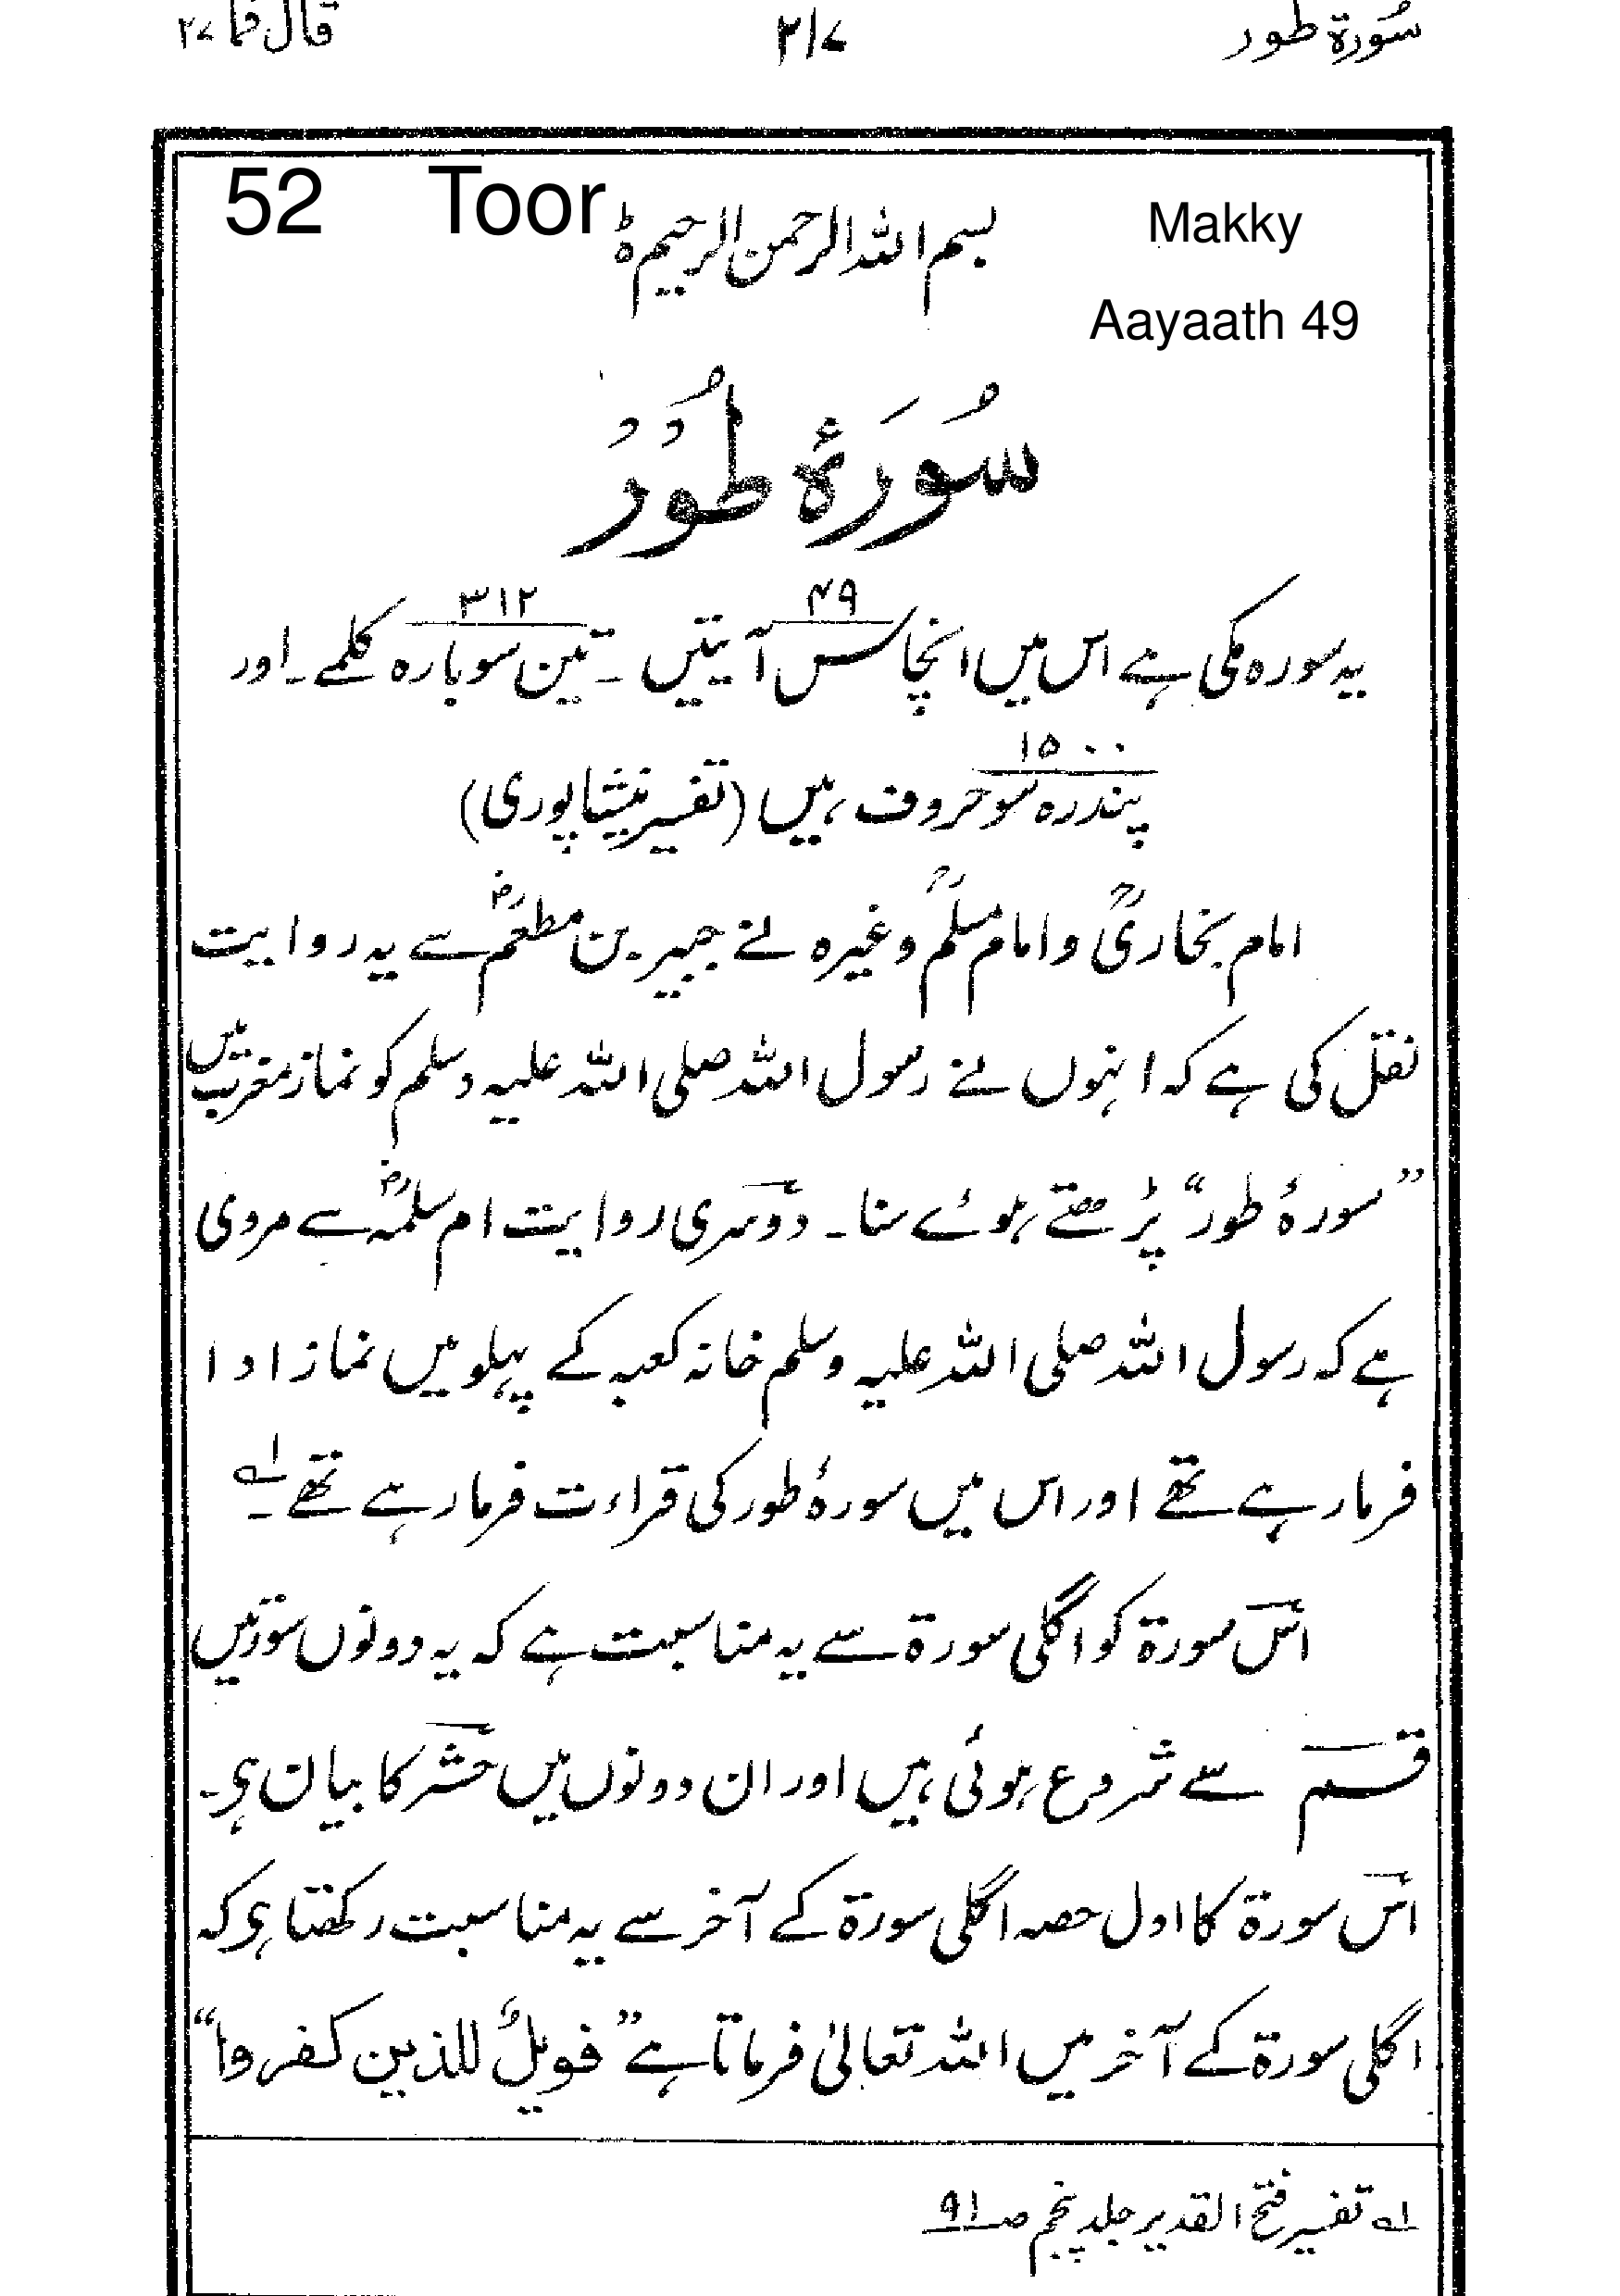 سُورۃ طور ۲۱۷ قال فما ۲۷
52 Toor بسم اللہ الرحمن الرحیم ط Makky
Aayaath 49
سُوْرَۂ طُوْرْ
۴۹ ۳۱۲
یہ سورہ مکی ہے اس میں انچاس آیتیں ۔ تین سو بارہ کلمے ۔ اور
۱۵۰۰
پندرہ سو حروف ہیں (تفسیر نیشاپوری)
امام بخاریؒ و امام مسلمؒ وغیرہ نے جبیر بن مطعمؓ سے یہ روایت
نقل کی ہے کہ انہوں نے رسول اللہ صلی اللہ علیہ وسلم کو نماز مغرب میں
”سورۂ طور“ پڑھتے ہوئے سنا ۔ دوسری روایت ام سلمہؓ سے مروی
ہے کہ رسول اللہ صلی اللہ علیہ وسلم خانہ کعبہ کے پہلو میں نماز ادا
فرما رہے تھے اور اس میں سورۂ طور کی قراءت فرما رہے تھے ۔ ؂۱
اس سورۃ کو اگلی سورۃ سے یہ مناسبت ہے کہ یہ دونوں سورتیں
قسم سے شروع ہوئی ہیں اور ان دونوں میں حشر کا بیان ہی ۔
اس سورۃ کا اول حصہ اگلی سورۃ کے آخر سے یہ مناسبت رکھتا ہی کہ
اگلی سورۃ کے آخر میں اللہ تعالیٰ فرماتا ہے ”فویلٌ للذین کفروا“
؂۱ تفسیر فتح القدیر جلد پنجم صـ ۹۱